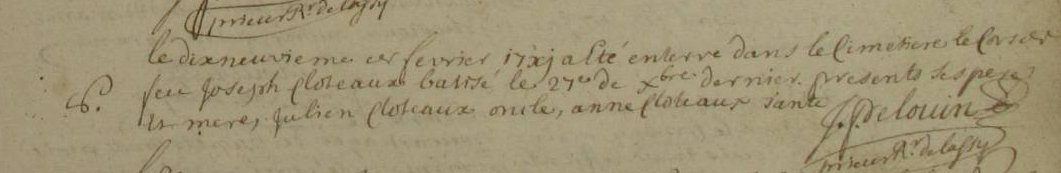 prieur Rr de lassy
le dixneuvieme fevrier 17xj a esté enterre dans le Cimetiere le Corps de
S. feu Joseph Cloteaux batisé le 27e de Xbre dernier. presents ses pere
et mere, Julien Cloteaux oncle, anne Cloteaux tante
J. Delouin
prieur Rr de lassy